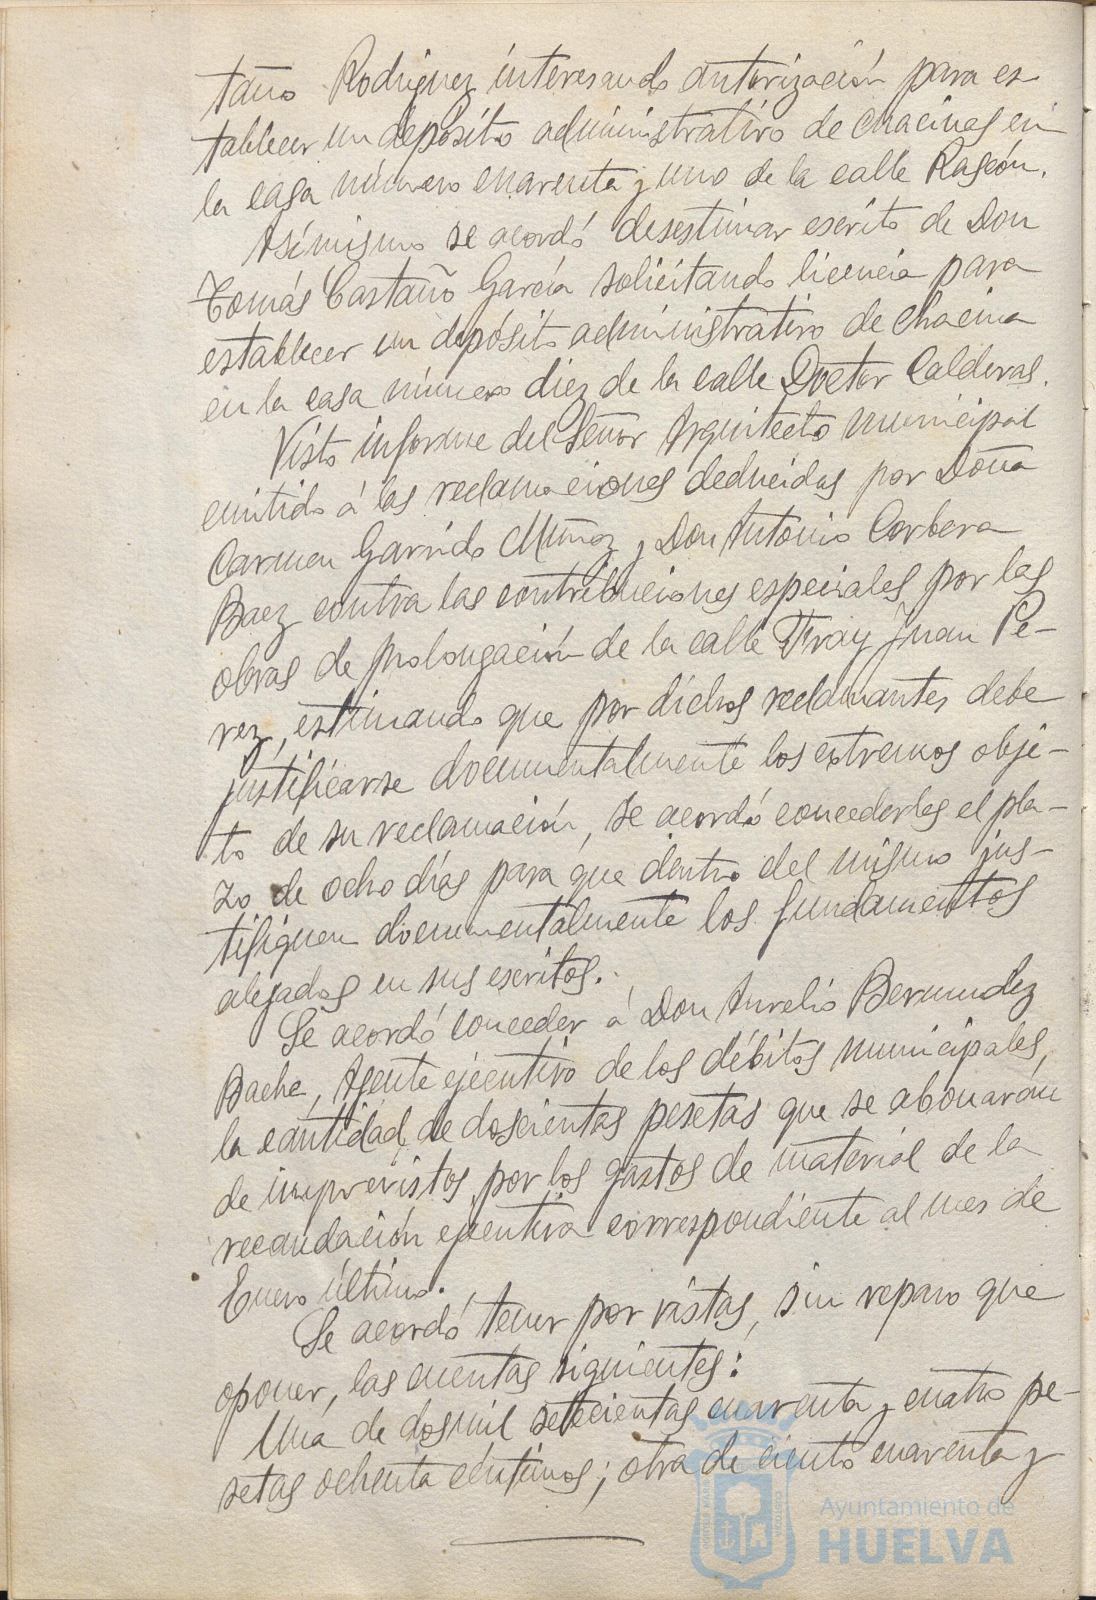 taño Rodriguez interesando autorización para es-
tablecer un depósito administrativo de chacinas en
la casa número cuarenta y uno de la calle Rascón.
Asímismo se acordó desestimar escrito de Don
Tomás Castaño García solicitando licencia para
establecer un depósito administrativo de chacina
en la casa número diez de la calle Doctor Calderas.
Visto informe del Señor Arquitecto municipal
emitido á las reclamaciones deducidas por Doña
Carmen Garrido Muñoz y Don Antonio Corbera
Baez contra las contribuciones especiales por las
obras de prolongación de la calle Fray Juan Pe-
rez, estimando que por dichos reclamantes debe
justificarse documentalmente los extremos obje-
to de su reclamación, se acordó concederles el pla-
zo de ocho días para que dentro del mismo jus-
tifiquen documentalmente los fundamentos
alegados en sus escritos.
Se acordó conceder á Don Aurelio Bermudez
Bache, Agente ejecutivo de los débitos municipales,
la cantidad de doscientas pesetas que se abonarán
de imprevistos por los gastos de material de la
recaudación ejecutiva correspondiente al mes de
Enero último.
Se acordó tener por vistas, sin reparo que
oponer, las cuentas siguientes:
Una de dosmil setecientas cuarenta y cuatro pe-
setas ochenta céntimos; otra de ciento cuarenta y
Ayuntamiento de
HUELVA